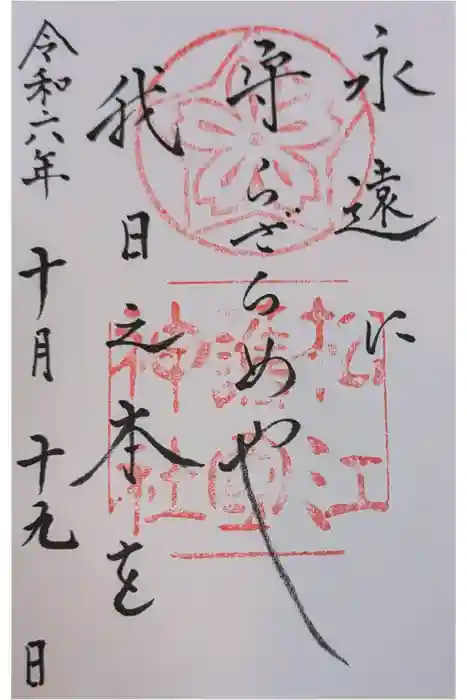 永遠に
守らざらめや
我日之本を
令和六年 十月 十九 日
松江
護國
神社